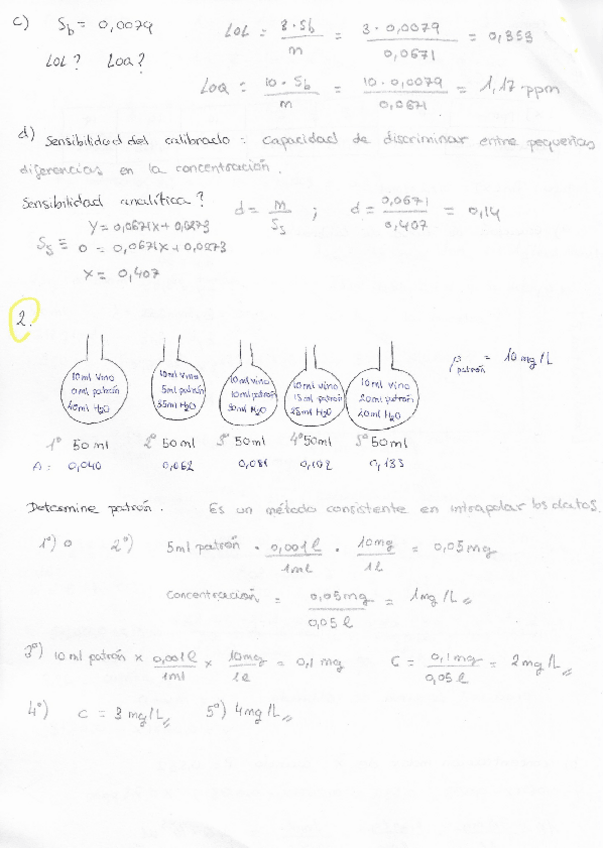 c) Sb = 0,0079
LOL = 3·Sb / m = 3·0,0079 / 0,0671 = 0,353
LOL? LOQ?
LOQ = 10·Sb / m = 10·0,0079 / 0,0671 = 1,17 ppm
d) Sensibilidad del calibrado: capacidad de discriminar entre pequeñas
diferencias en la concentración.
Sensibilidad analítica?
d = m / Ss ; d = 0,0671 / 0,407 = 0,14
Y = 0,0671x + 0,0273
Ss ≡ 0 = 0,0671x + 0,0273
x = 0,407
2.
10ml vino 0ml patrón 40ml H2O
10ml vino 5ml patrón 35ml H2O
10ml vino 10ml patrón 30ml H2O
10ml vino 15ml patrón 25ml H2O
10ml vino 20ml patrón 20ml H2O
ρ patrón = 10 mg/L
1º 50ml 2º 50ml 3º 50ml 4º 50ml 5º 50ml
A: 0,040 0,062 0,081 0,102 0,133
Determine patrón. Es un método consistente en intrapolar los datos.
1º) 0 2º) 5ml patrón · 0,001l / 1ml · 10mg / 1L = 0,05mg
Concentración = 0,05mg / 0,05l = 1mg/L
3º) 10ml patrón × 0,001l / 1ml × 10mg / 1l = 0,1 mg C = 0,1mg / 0,05l = 2mg/L
4º) C = 3mg/L 5º) 4mg/L